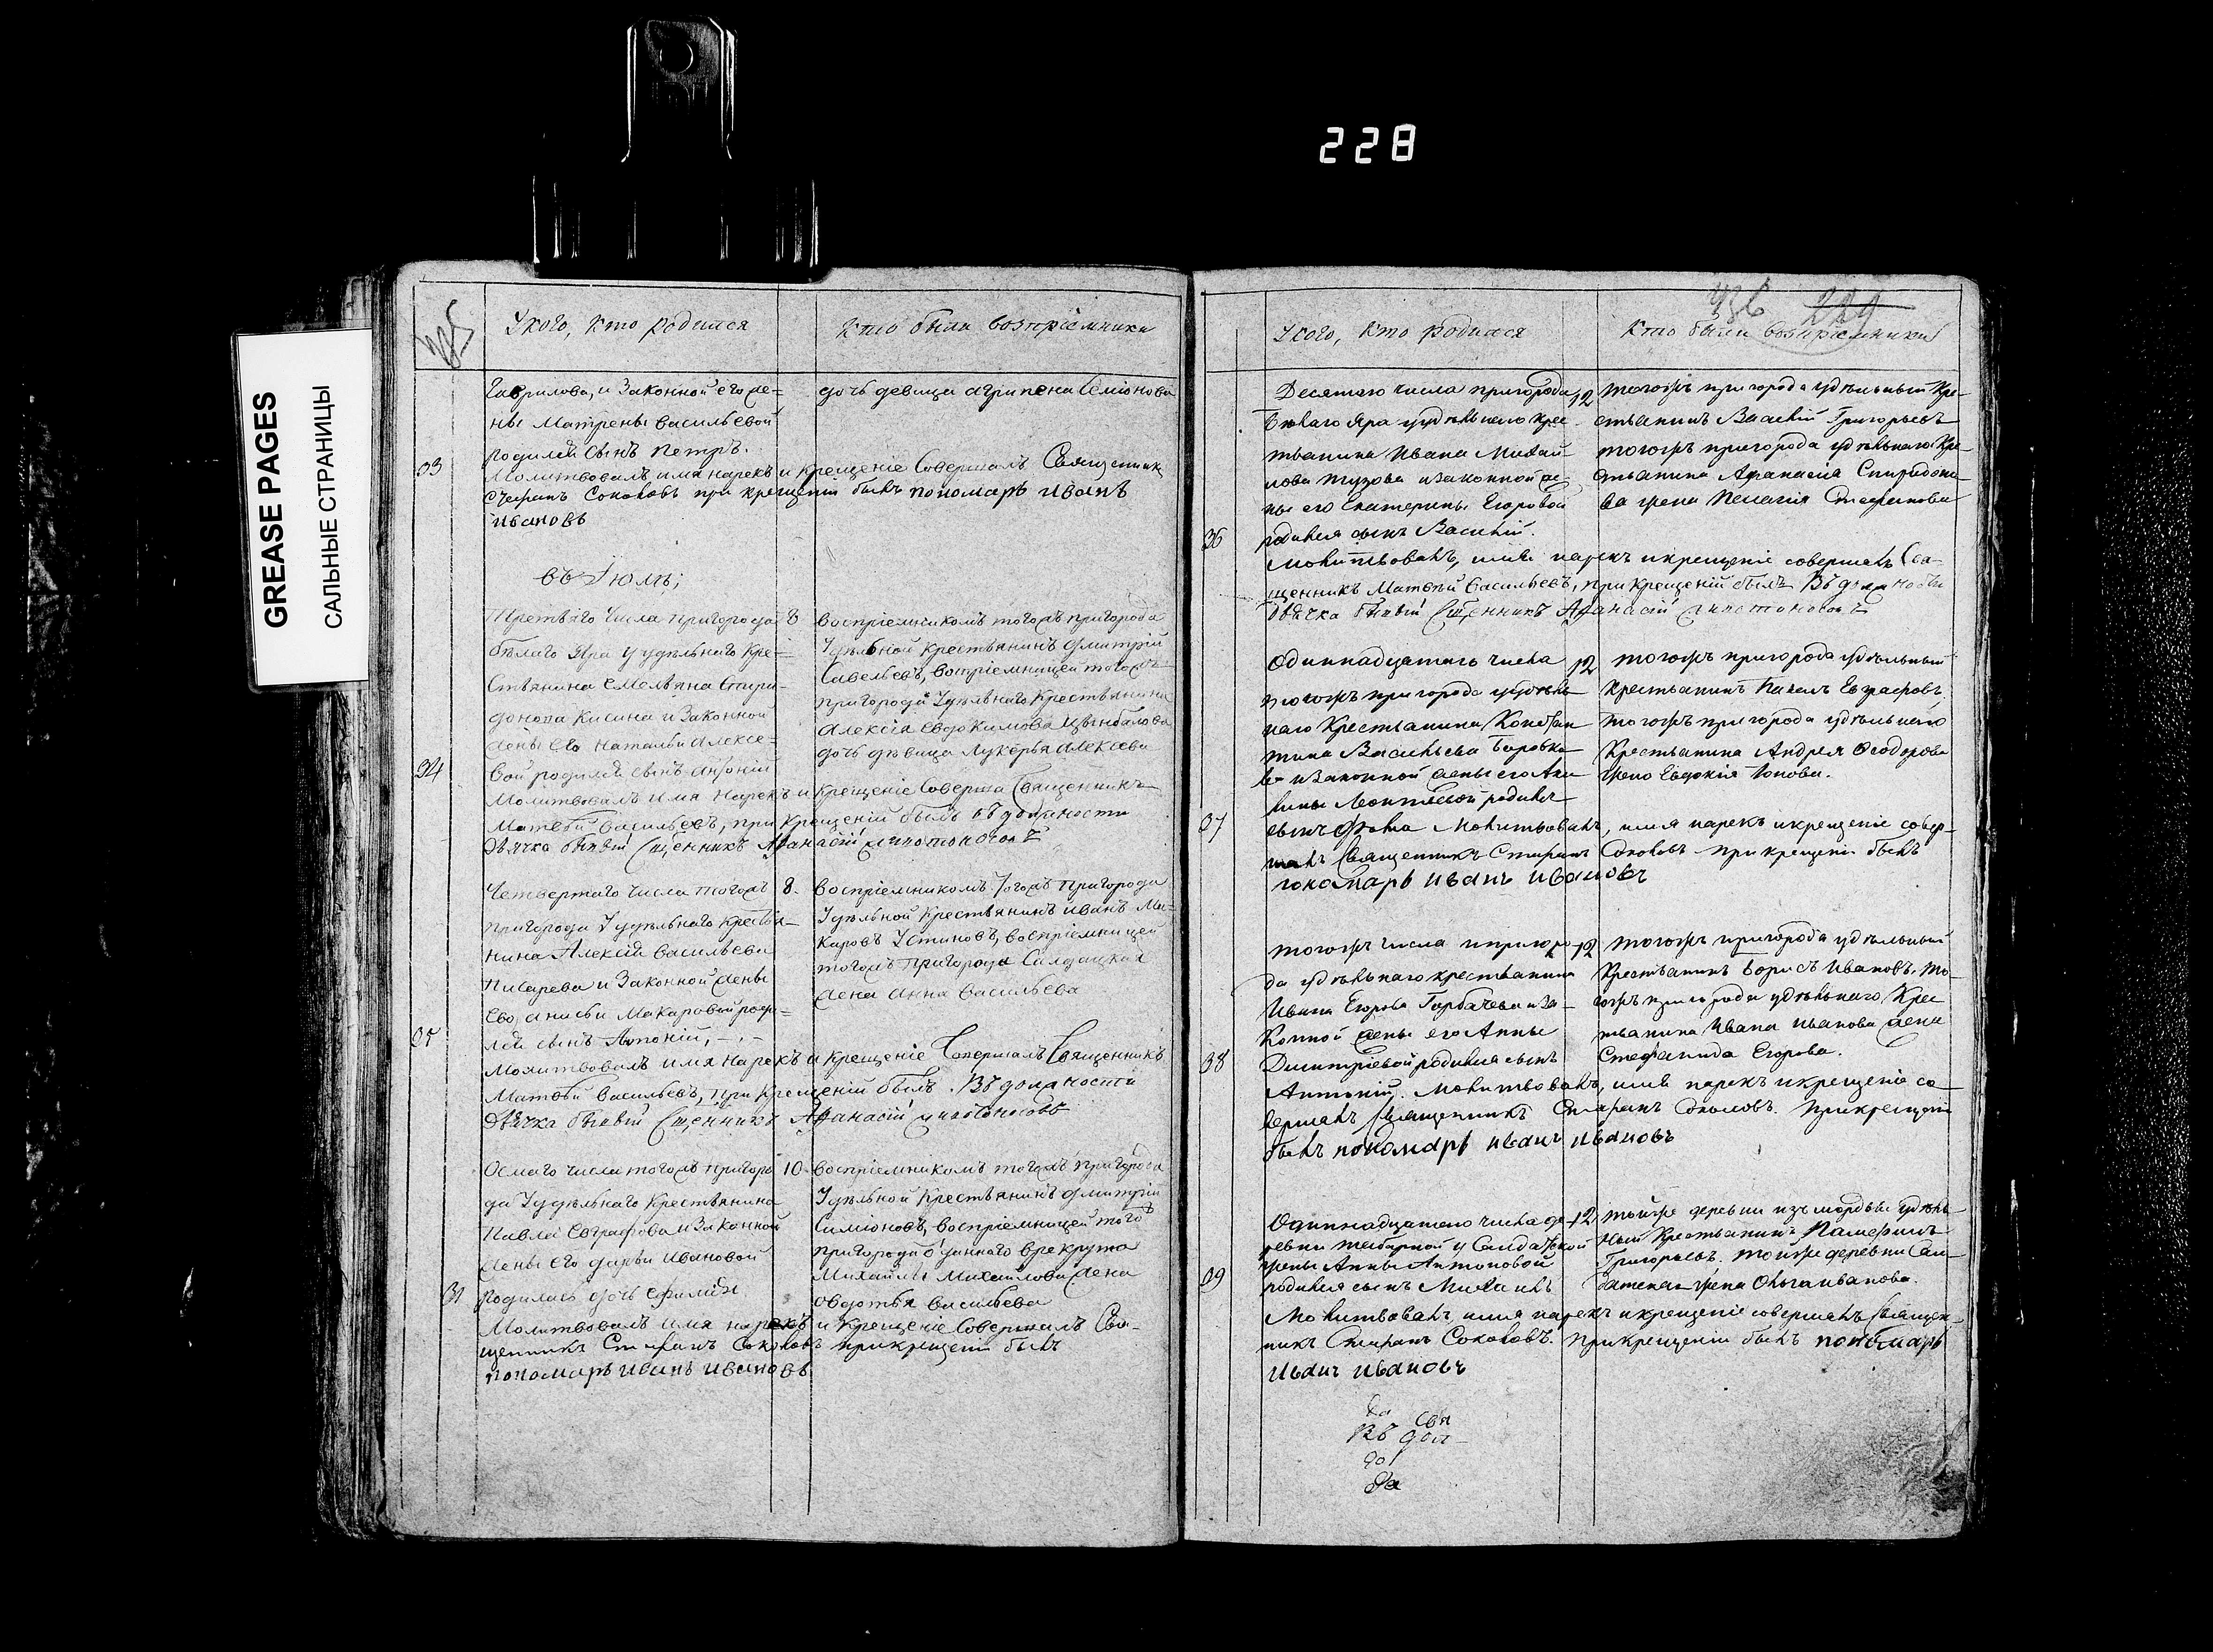 228
GREASE PAGES
САЛЬНЫЕ СТРАНИЦЫ
У кого, кто родился
Кто были воспріемники
Гаврилова, и Законной его же=
ны Матрены васильевой
родился сынъ петръ.
дочь девица агрипена Семіонова
33
Молитвовалъ имя нарекъ и крещеніе Совершалъ Священникъ
Стефанъ Соколовъ при крещеніи былъ пономарь иванъ
ивановъ
въ Іюлѣ;
Третьяго Числа пригорода
бѣлаго Яра у удѣльнаго кре=
стьянина Емельяна Спири-
донова Кисина и Законной
жены Его Натальи Алексе=
вой родился сынъ Антоній
8
воспріемникомъ тогожъ пригорода
Удѣльной крестьянинъ дмитрій
Савельевъ, воспріемницей тогожъ
пригорода Удѣльнаго Крестьянина
Алексія Евдокимова Цынбалова
дочь дѣвица Лукерья Алексѣева
34
Молитвовалъ имя нарекъ и крещеніе Соверша Священникъ
Матвѣй васильевъ, при крещеніи былъ въ должности
дьячка бывый Сщенникъ Афанасій
Четвертаго числа тогожъ
пригорода У удѣльнаго крестья-
нина Алексія васильева
Писарева и Законной жены
Ево анисьи Макаровой роди=
лся сынъ Антоній,
8.
воспріемникомъ Тогожъ пригорода
Удѣльной Крестьянинъ иванъ Ма-
каровъ Устиновъ, воспріемницей
тогожъ пригорода Салдацкая
жена анна васильева
35
Молитвовалъ имя нарекъ и крещеніе Совершалъ Священникъ
Матвѣй васильевъ, при крещеніи былъ. Въ должности
дьячка бывый Сщенникъ Афанасій
Осмаго числа тогожъ пригоро
да У удѣльнаго крестьянина
Павла Евграфова и Законной
жены его дарьи ивановой
родилась дочь
10
воспріемникомъ тогожъ пригорода
Удѣльной крестьянинъ дмитрій
Симіоновъ, воспріемницей того
пригорода отданнаго врекруты
Михайлы Михайлова жена
овдотья васильева
31
Молитвовалъ имя нарекъ и крещеніе Совершалъ Свя-
щенникъ Стефанъ Соколовъ при крещеніи былъ
пономарь иванъ ивановъ
436 229
У кого, кто родился
Кто были воспріемники
Десятаго числа пригорода
Бѣлаго Яра у удѣльнаго крес
тьянина Ивана Михай-
лова Тузова и законной же-
ны его Екатерины Егоровой
родился сынъ Василій.
12
тогожъ пригорода удѣльный Кре-
стьянинъ Василій Григорьевъ
тогожъ пригорода удѣльнаго Кре-
стьянина Афанасія Спиридоно-
ва жена Пелагія Стефанова
36
Молитвовалъ, имя нарекъ и крещеніе совершалъ Свя-
щенникъ Матвѣй Васильевъ, при крещеніи былъ Въ должности
дьячка бывый Сщенникъ Афанасій
Одиннадцатаго числа
тогожъ пригорода у удѣль
наго Крестьянина Констан
тина Васильева Боровко
ва и законной жены его Аку
лины Леонтьевой родился
12
тогожъ пригорода удѣльный
Крестьянинъ Павелъ Евграфовъ,
тогожъ пригорода удѣльнаго
Крестьянина Андрея Ѳеодорова
жена Евдокія Іонова.
37
сынъ Ѳома Молитвовалъ, имя нарекъ и крещеніе совер-
шалъ Священникъ Стефанъ Соколовъ при крещеніи былъ
пономарь иванъ ивановъ
тогожъ числа и пригоро
да удѣльнаго крестьянина
Ивана Егорова Горбачева и за-
конной жены его Анны
Димитріевой родился сынъ
12
тогожъ пригорода удѣльный
Крестьянинъ Борисъ Ивановъ. То-
гожъ пригорода удѣльнаго Крес
тьянина Ивана Иванова жена
Стефанида Егорова.
38
Антоній. Молитвовалъ, имя нарекъ и крещеніе со-
вершалъ Священникъ Стефанъ Соколовъ. При крещеніи
былъ пономарь иванъ ивановъ
Одиннадцатаго числа де-
ревни у Салдатской
жены Анны Антоновой
родился сынъ Михаилъ
12
тойже деревни изъ мордвы удѣль-
ный Крестьянинъ
Григорьевъ. тойже деревни Сол-
датская жена Ольга иванова.
39
Молитвовалъ, имя нарекъ и крещеніе совершалъ Священ-
никъ Стефанъ Соколовъ. При крещеніи былъ пономарь
иванъ ивановъ
Свя
Въ дол